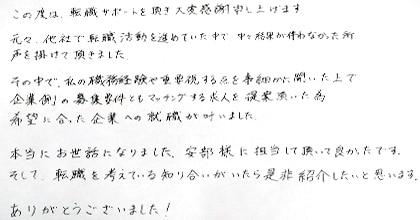 この度は、転職サポートを頂き大変感謝申し上げます。
元々、他社で転職活動を進めていた中で中々結果が伴わなかった所
声を掛けて頂きました。
その中で、私の職務経験や重要視する点を事細かに聞いた上で
企業側の募集要件ともマッチングする求人を提案頂いた為
希望に合った企業への就職が叶いました。
本当にお世話になりました。安部様に担当して頂いて良かったです。
そして、転職を考えている知り合いがいたら是非紹介したいと思います。
ありがとうございました！